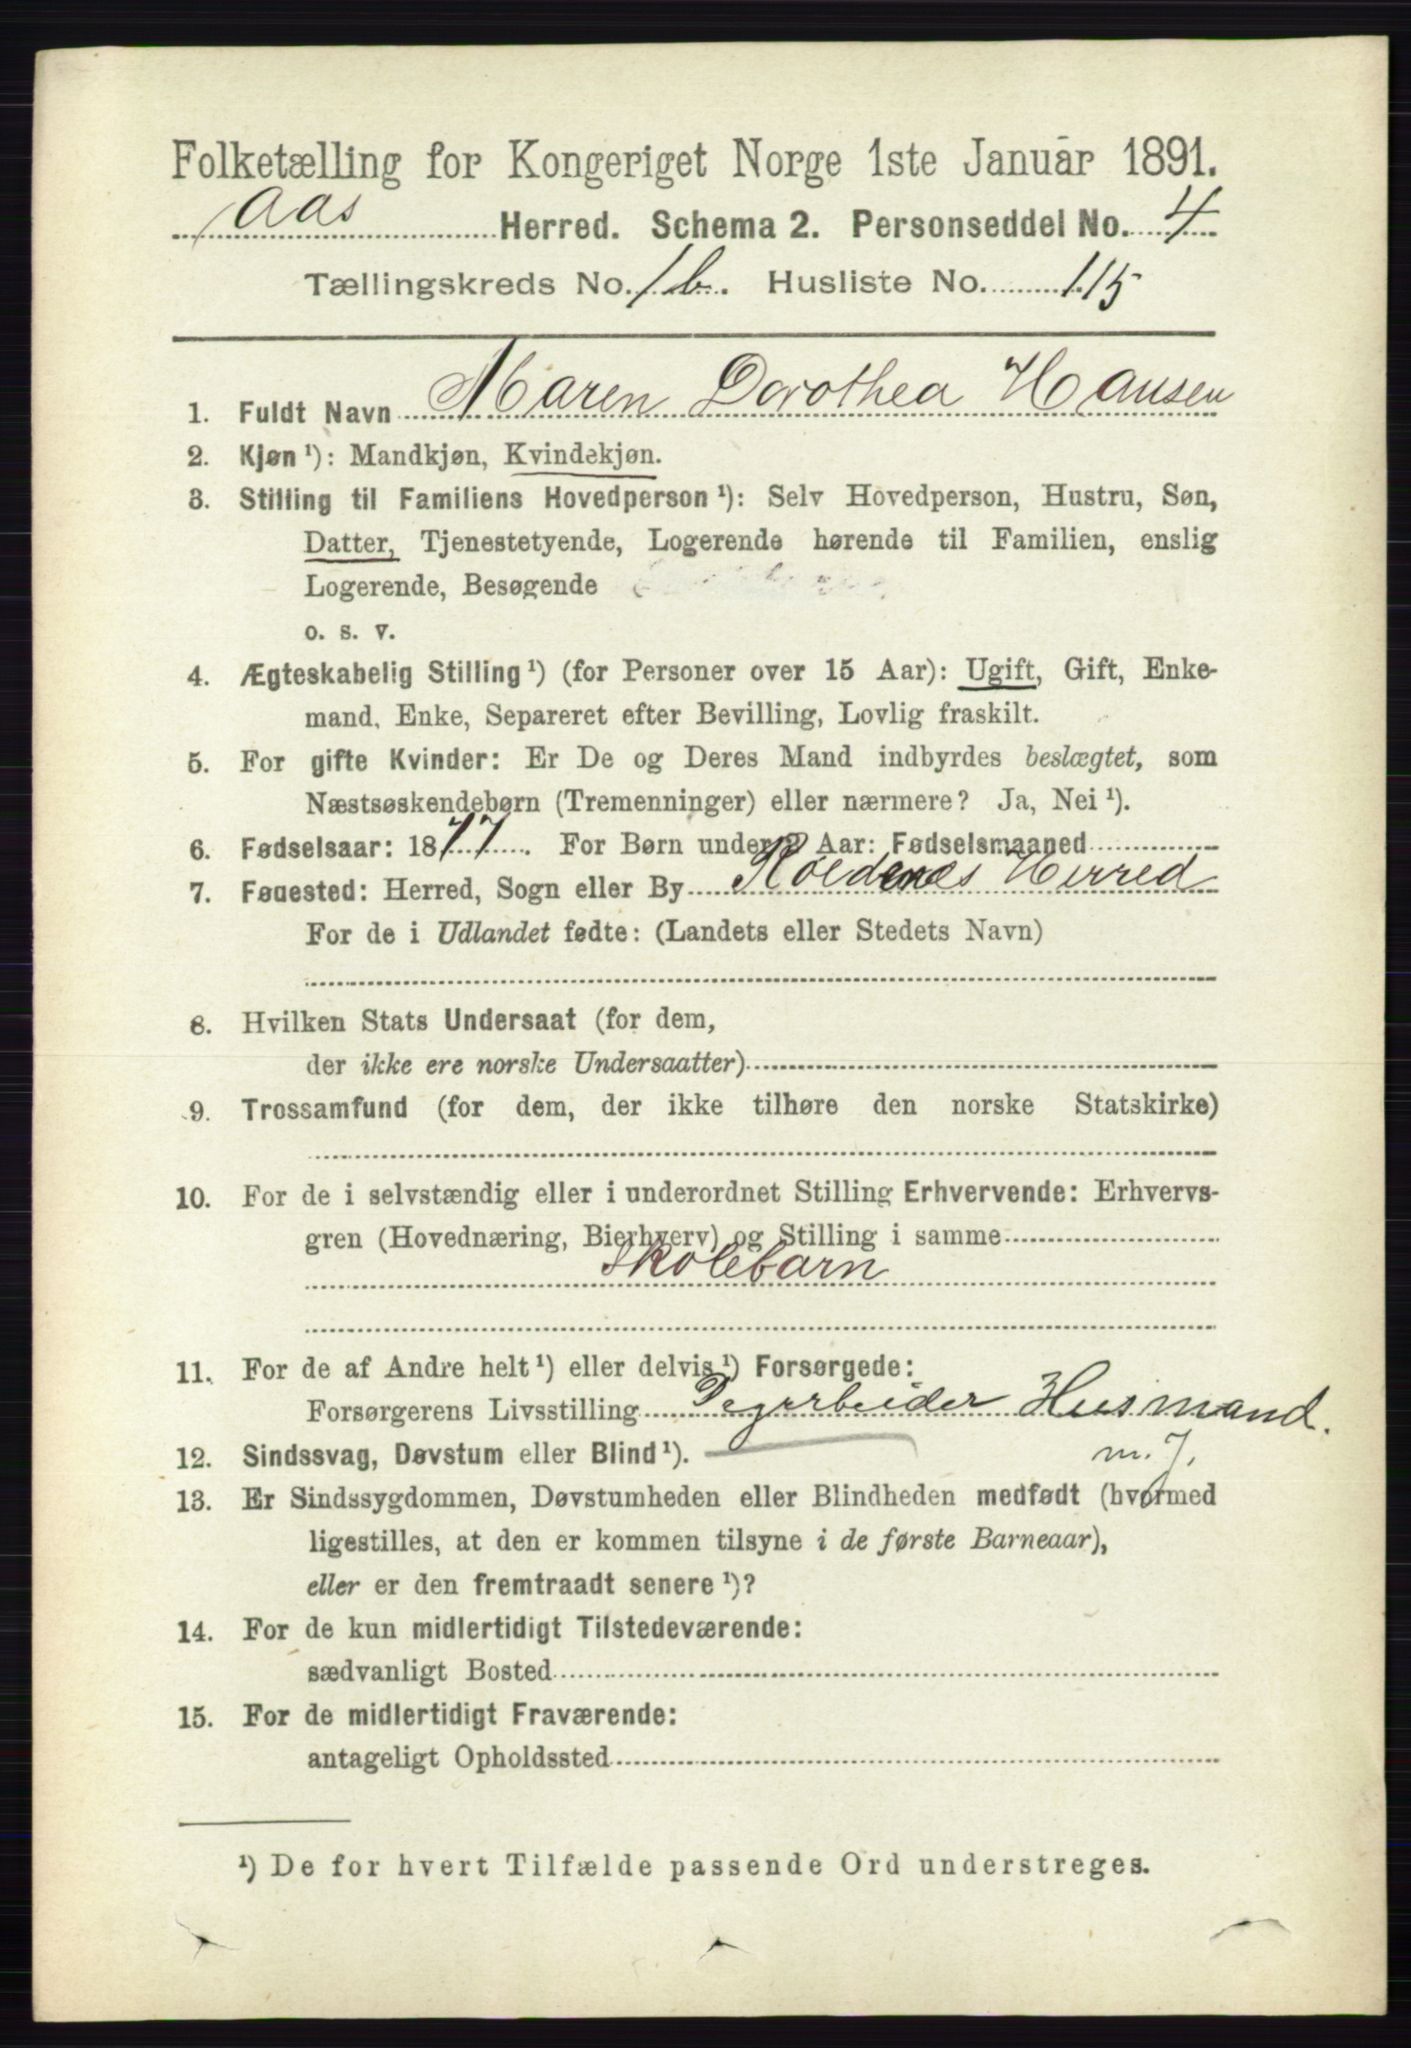 Folketælling for Kongeriget Norge 1ste Januar 1891.
Aas Herred. Schema 2. Personseddel No. 4
Tællingskreds No. 1b. Husliste No. 115
1. Fuldt Navn Maren Dorothea Hansen
2. Kjøn ¹): Mandkjøn, Kvindekjøn.
3. Stilling til Familiens Hovedperson ¹): Selv Hovedperson, Hustru, Søn,
Datter, Tjenestetyende, Logerende hørende til Familien, enslig
Logerende, Besøgende
o. s. v.
4. Ægteskabelig Stilling ¹) (for Personer over 15 Aar): Ugift, Gift, Enke-
mand, Enke, Separeret efter Bevilling, Lovlig fraskilt.
5. For gifte Kvinder: Er De og Deres Mand indbyrdes beslægtet, som
Næstsøskendebørn (Tremenninger) eller nærmere? Ja, Nei ¹).
6. Fødselsaar: 1877. For Børn under 2 Aar: Fødselsmaaned
7. Føuested: Herred, Sogn eller By Røedenæs Herred
For de i Udlandet fødte: (Landets eller Stedets Navn)
8. Hvilken Stats Undersaat (for dem,
der ikke ere norske Undersaatter)
9. Trossamfund (for dem, der ikke tilhøre den norske Statskirke)
10. For de i selvstændig eller i underordnet Stilling Erhvervende: Erhvervs-
gren (Hovednæring, Bierhverv) og Stilling i samme
Skolebarn
11. For de af Andre helt ¹) eller delvis ¹) Forsørgede:
Forsørgerens Livsstilling Dagarbeider Husmand.
12. Sindssvag, Døvstum eller Blind ¹). m. J.
13. Er Sindssygdommen, Døvstumheden eller Blindheden medfødt (hvormed
ligestilles, at den er kommen tilsyne i de første Barneaar),
eller er den fremtraadt senere ¹)?
14. For de kun midlertidigt Tilstedeværende:
sædvanligt Bosted
15. For de midlertidigt Fraværende:
antageligt Opholdssted
¹) De for hvert Tilfælde passende Ord understreges.